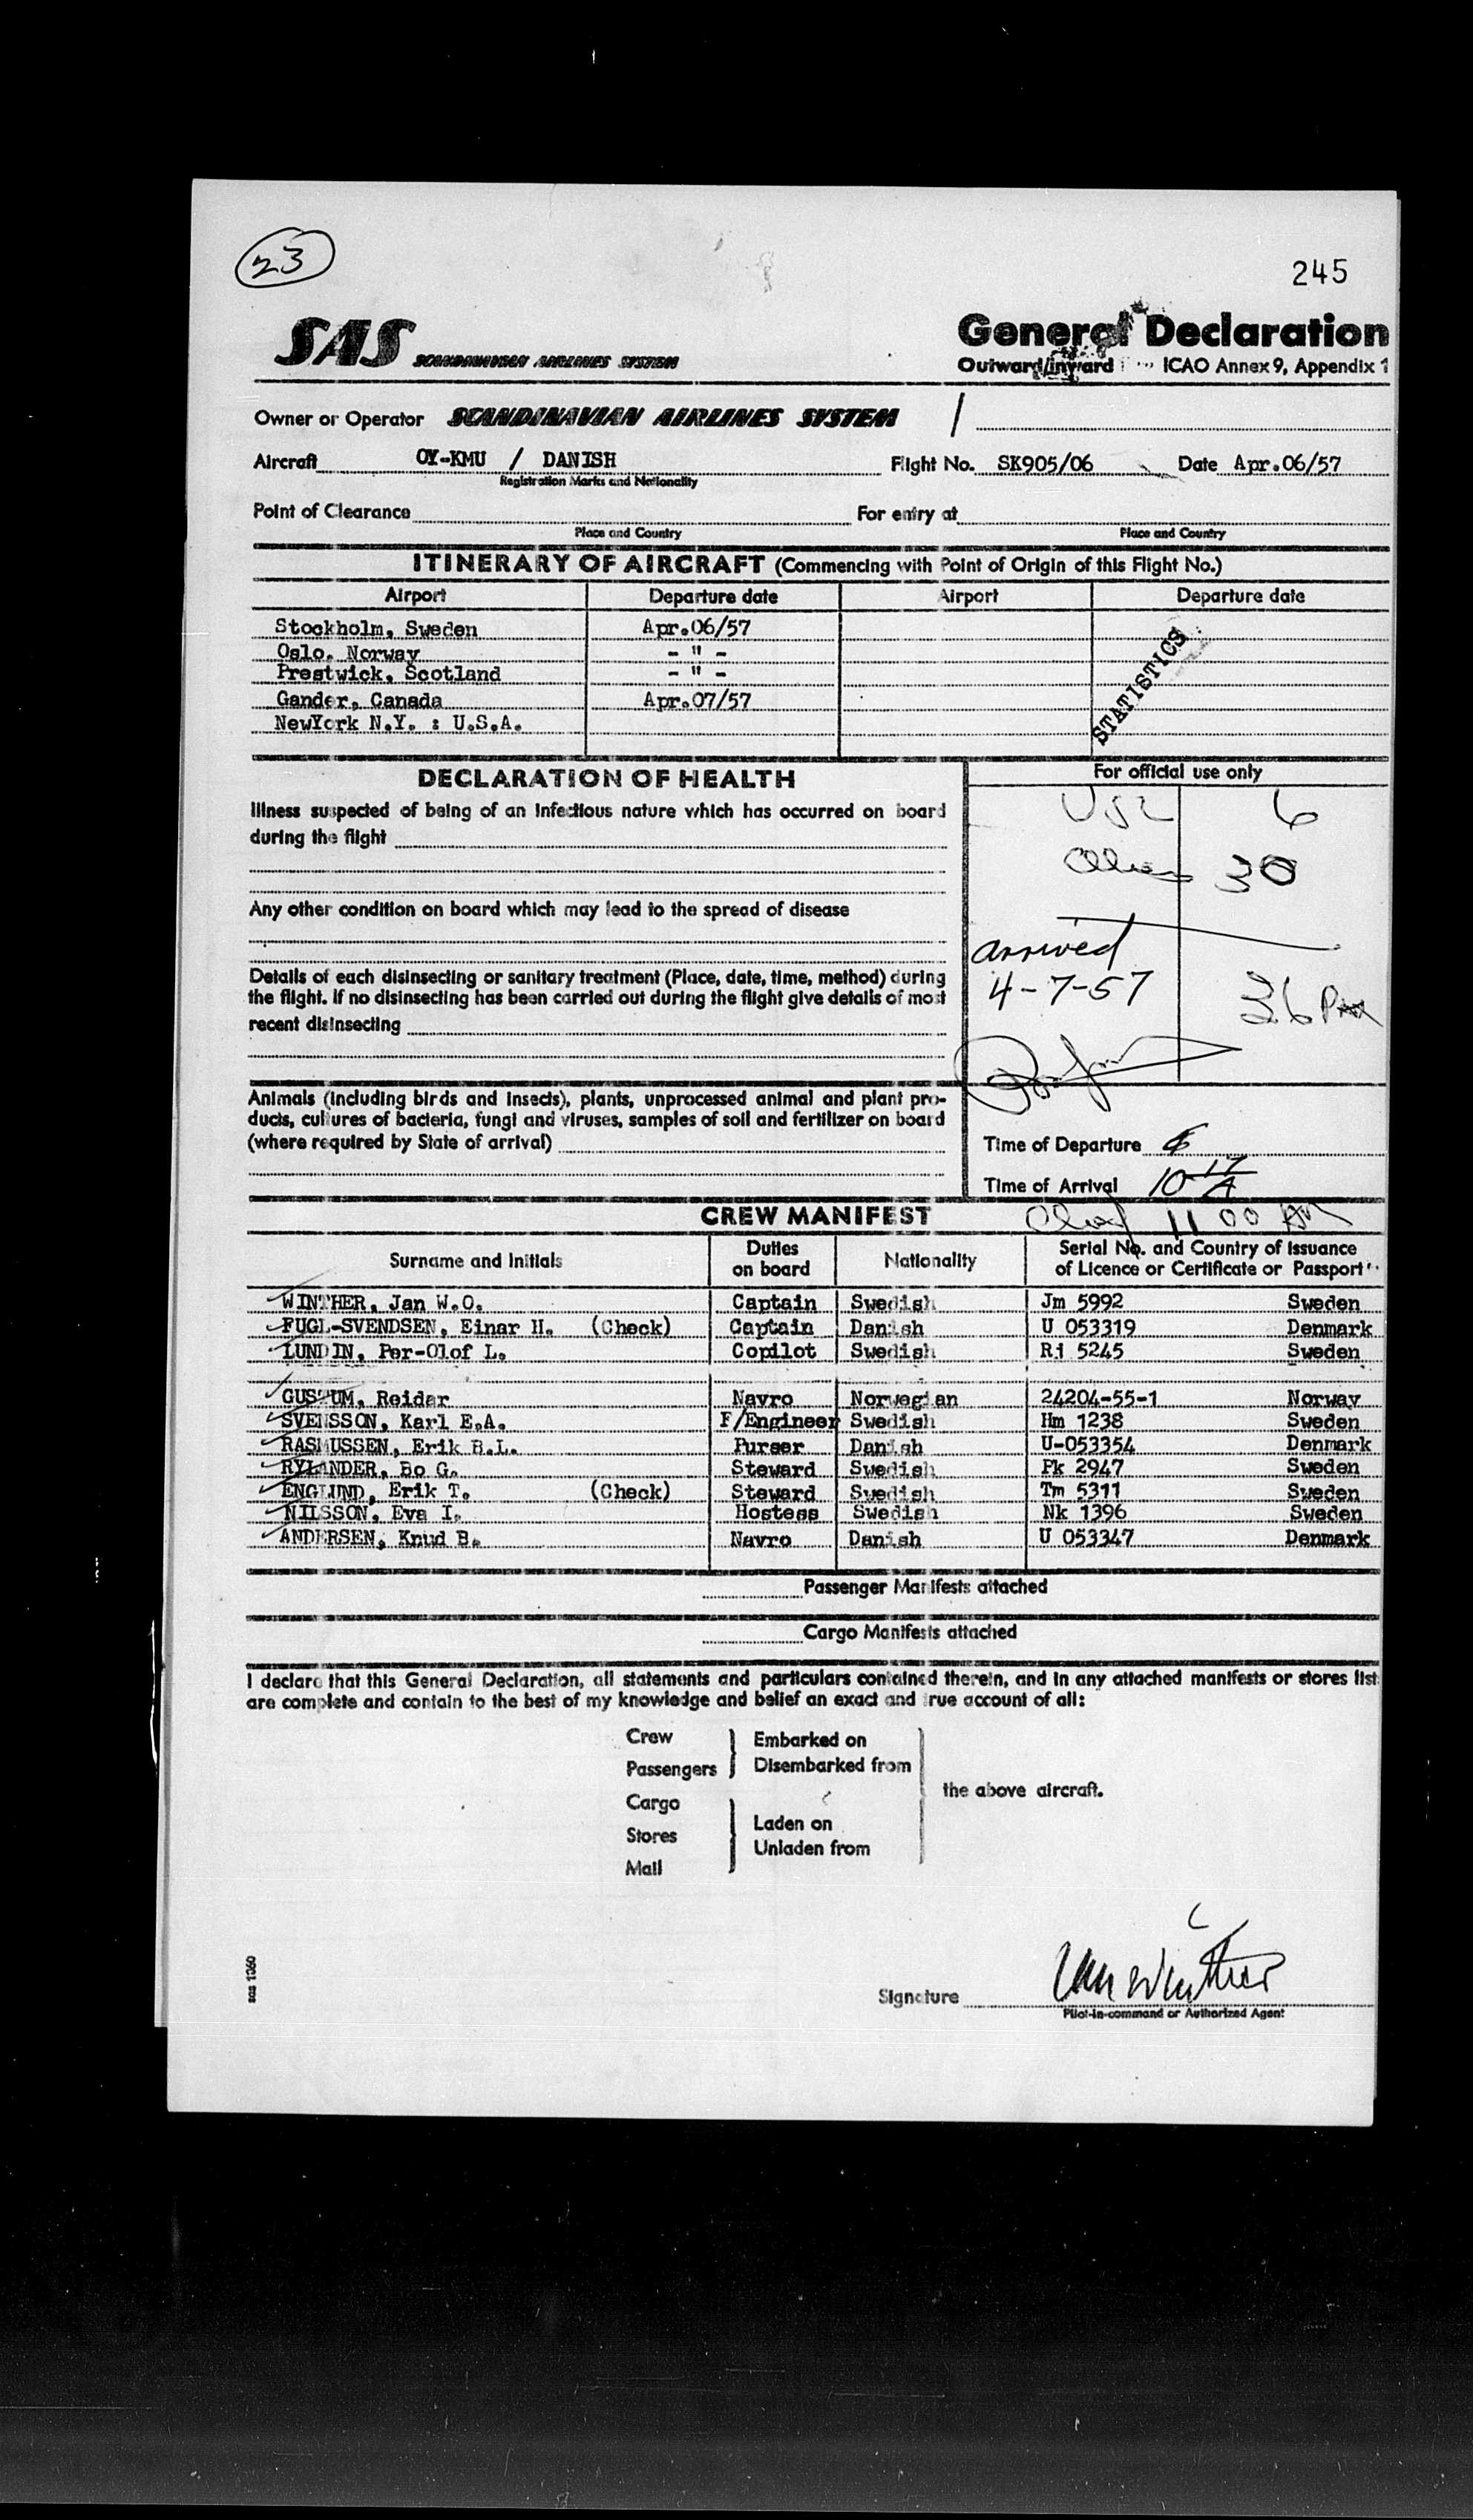 23
245
SAS SCANDINAVIAN AIRLINES SYSTEM
General Declaration
Outward/Inward ICAO Annex 9, Appendix 1
Owner or Operator SCANDINAVIAN AIRLINES SYSTEM /
Aircraft OY-KMU / DANISH Flight No. SK905/06 Date Apr.06/57
Registration Marks and Nationality
Point of Clearance For entry at
Place and Country Place and Country
ITINERARY OF AIRCRAFT (Commencing with Point of Origin of this Flight No.)
Airport Departure date Airport Departure date
Stockholm, Sweden Apr.06/57
Oslo. Norway - " -
Prestwick, Scotland - " -
Gander, Canada Apr.07/57
NewYork N.Y. : U.S.A.
STATISTICS
DECLARATION OF HEALTH
Illness suspected of being of an infectious nature which has occurred on board
during the flight
Any other condition on board which may lead to the spread of disease
Details of each disinsecting or sanitary treatment (Place, date, time, method) during
the flight. If no disinsecting has been carried out during the flight give details of most
recent disinsecting
Animals (including birds and insects), plants, unprocessed animal and plant pro-
ducts, cultures of bacteria, fungi and viruses, samples of soil and fertilizer on board
(where required by State of arrival)
For official use only
6
30
arrived
4-7-57
36
Time of Departure
Time of Arrival 10 17 A
11 00 AM
CREW MANIFEST
Surname and Initials Duties on board Nationality Serial No. and Country of Issuance of Licence or Certificate or Passport
WINTHER, Jan W.O. Captain Swedish Jm 5992 Sweden
FUGL-SVENDSEN, Einar H. (Check) Captain Danish U 053319 Denmark
LUNDIN, Per-Olof L. Copilot Swedish Rj 5245 Sweden
GUSTUM, Reidar Navro Norwegian 24204-55-1 Norway
SVENSSON, Karl E.A. F/Engineer Swedish Hm 1238 Sweden
RASMUSSEN, Erik B.L. Purser Danish U-053354 Denmark
RYLANDER, Bo G. Steward Swedish Pk 2947 Sweden
ENGLUND, Erik T. (Check) Steward Swedish Tm 5311 Sweden
NILSSON, Eva I. Hostess Swedish Nk 1396 Sweden
ANDERSEN, Knud B. Navro Danish U 053347 Denmark
Passenger Manifests attached
Cargo Manifests attached
I declare that this General Declaration, all statements and particulars contained therein, and in any attached manifests or stores list
are complete and contain to the best of my knowledge and belief an exact and true account of all:
Crew
Passengers
Embarked on
Disembarked from
Cargo
Stores
Mail
Laden on
Unladen from
the above aircraft.
sas 1360
Signature Jan Winther
Pilot-in-command or Authorized Agent